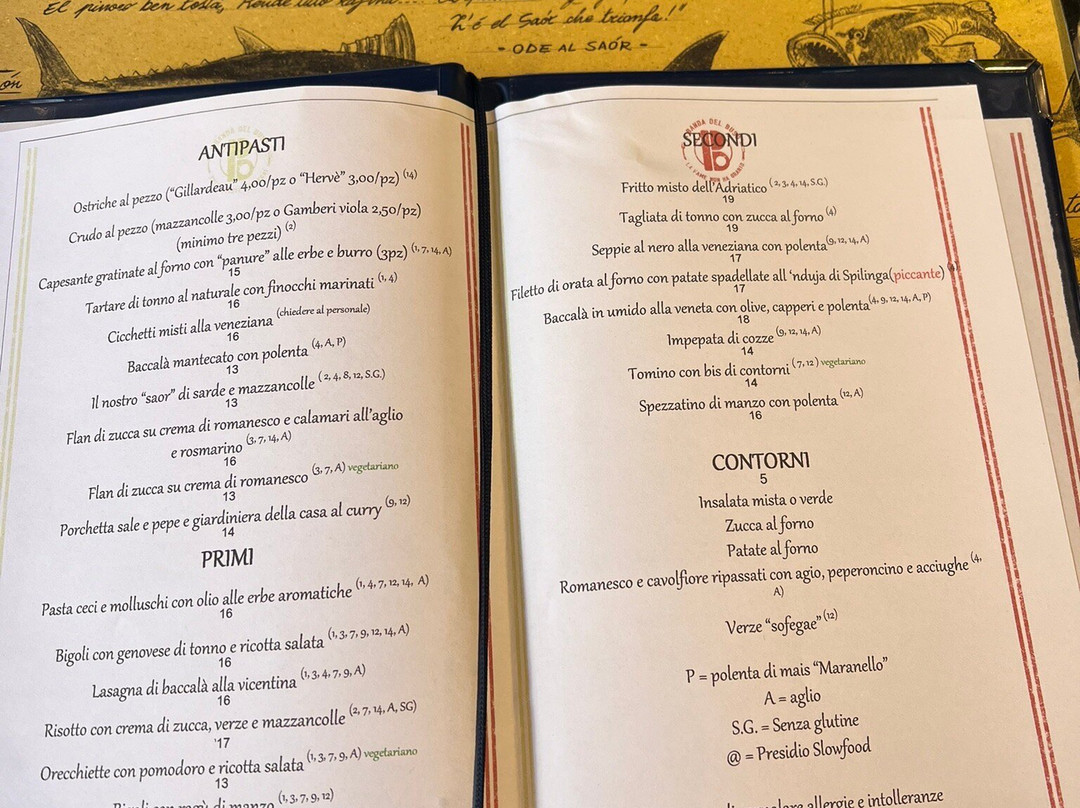 El pinseo ben tosta,
L'é el Saór che trionfa!"
- ODE AL SAÓR -
ANTIPASTI
Ostriche al pezzo ("Gillardeau" 4,00/pz o "Hervè" 3,00/pz) (14)
Crudo al pezzo (mazzancolle 3,00/pz o Gamberi viola 2,50/pz)
(minimo tre pezzi) (2)
Capesante gratinate al forno con "panure" alle erbe e burro (3pz) (1, 7, 14, A)
15
Tartare di tonno al naturale con finocchi marinati (1, 4)
16
Cicchetti misti alla veneziana (chiedere al personale)
16
Baccalà mantecato con polenta (4, A, P)
13
Il nostro "saor" di sarde e mazzancolle (2, 4, 8, 12, S.G.)
13
Flan di zucca su crema di romanesco e calamari all'aglio
e rosmarino (3, 7, 14, A)
16
Flan di zucca su crema di romanesco (3, 7, A) vegetariano
13
Porchetta sale e pepe e giardiniera della casa al curry (9, 12)
14
PRIMI
Pasta ceci e molluschi con olio alle erbe aromatiche (1, 4, 7, 12, 14, A)
16
Bigoli con genovese di tonno e ricotta salata (1, 3, 7, 9, 12, 14, A)
16
Lasagna di baccalà alla vicentina (1, 3, 4, 7, 9, A)
16
Risotto con crema di zucca, verze e mazzancolle (2, 7, 14, A, SG)
'17
Orecchiette con pomodoro e ricotta salata (1, 3, 7, 9, A) vegetariano
13
Bigoli con ragù di manzo (1, 3, 7, 9, 12)
SECONDI
Fritto misto dell'Adriatico (2, 3, 4, 14, S.G.)
19
Tagliata di tonno con zucca al forno (4)
19
Seppie al nero alla veneziana con polenta (9, 12, 14, A)
17
Filetto di orata al forno con patate spadellate all 'nduja di Spilinga(piccante)
17
Baccalà in umido alla veneta con olive, capperi e polenta (4, 9, 12, 14, A, P)
18
Impepata di cozze (9, 12, 14, A)
14
Tomino con bis di contorni (7, 12) vegetariano
14
Spezzatino di manzo con polenta (12, A)
16
CONTORNI
5
Insalata mista o verde
Zucca al forno
Patate al forno
Romanesco e cavolfiore ripassati con agio, peperoncino e acciughe (4,
A)
Verze "sofegae" (12)
P = polenta di mais "Maranello"
A = aglio
S.G. = Senza glutine
@ = Presidio Slowfood
allergie e intolleranze